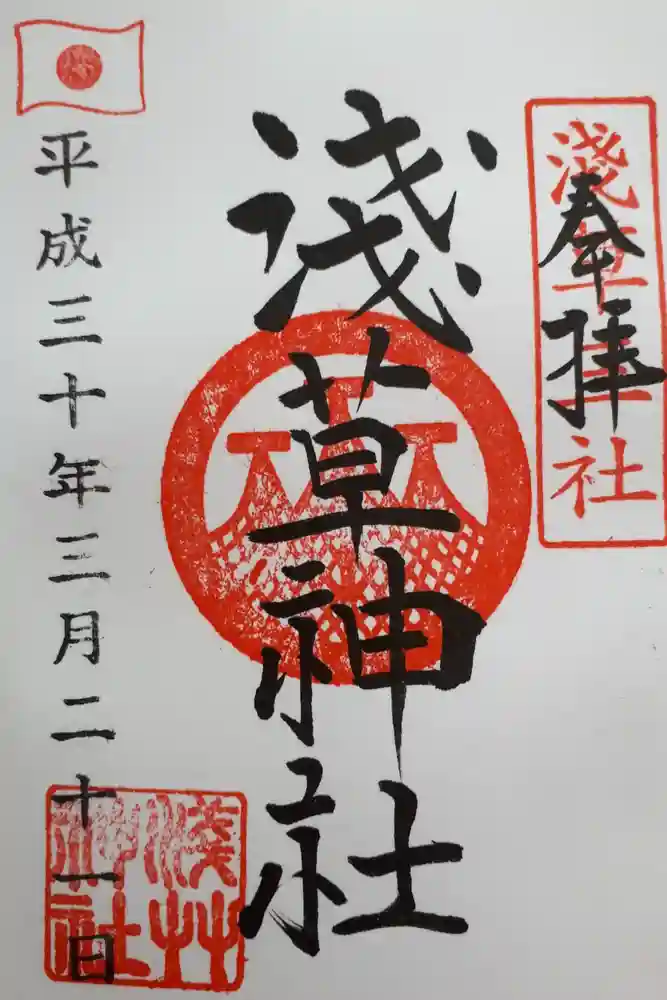 奉拝
淺草三社
淺草神社
平成三十年三月二十一日
淺草神社